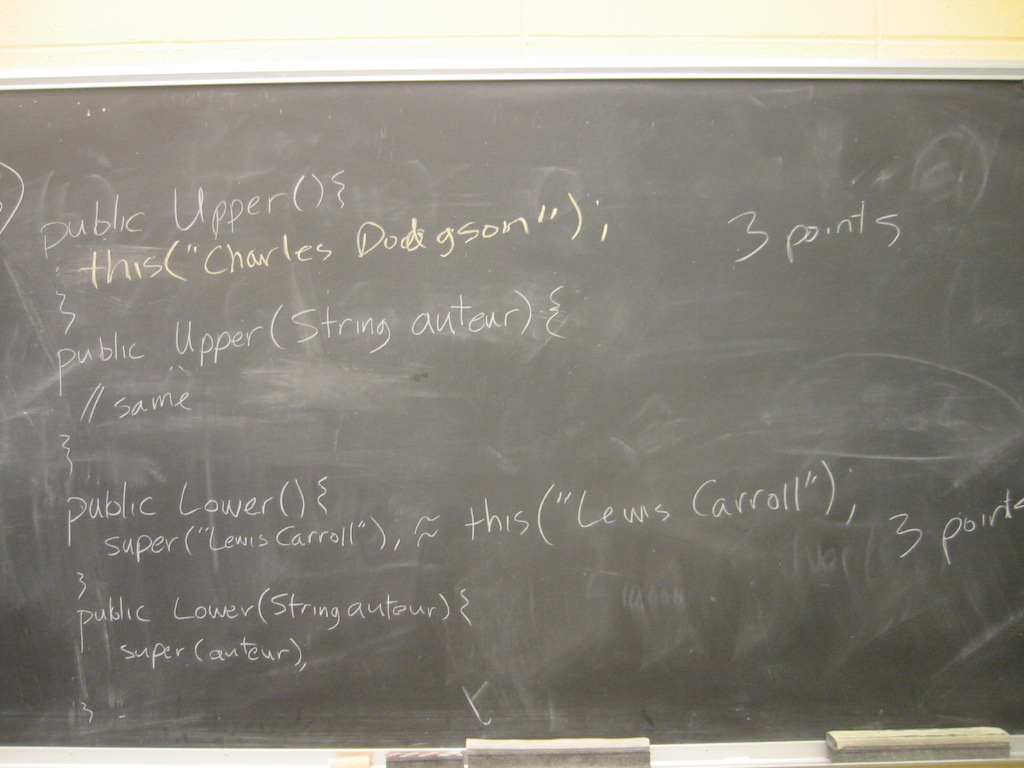 public Upper(){
this("Charles Dodgson"); 3 points
}
public Upper(String auteur){
// same
}
public Lower(){
super("Lewis Carroll"); ≈ this("Lewis Carroll"); 3 points
}
public Lower(String auteur){
super(auteur);
}